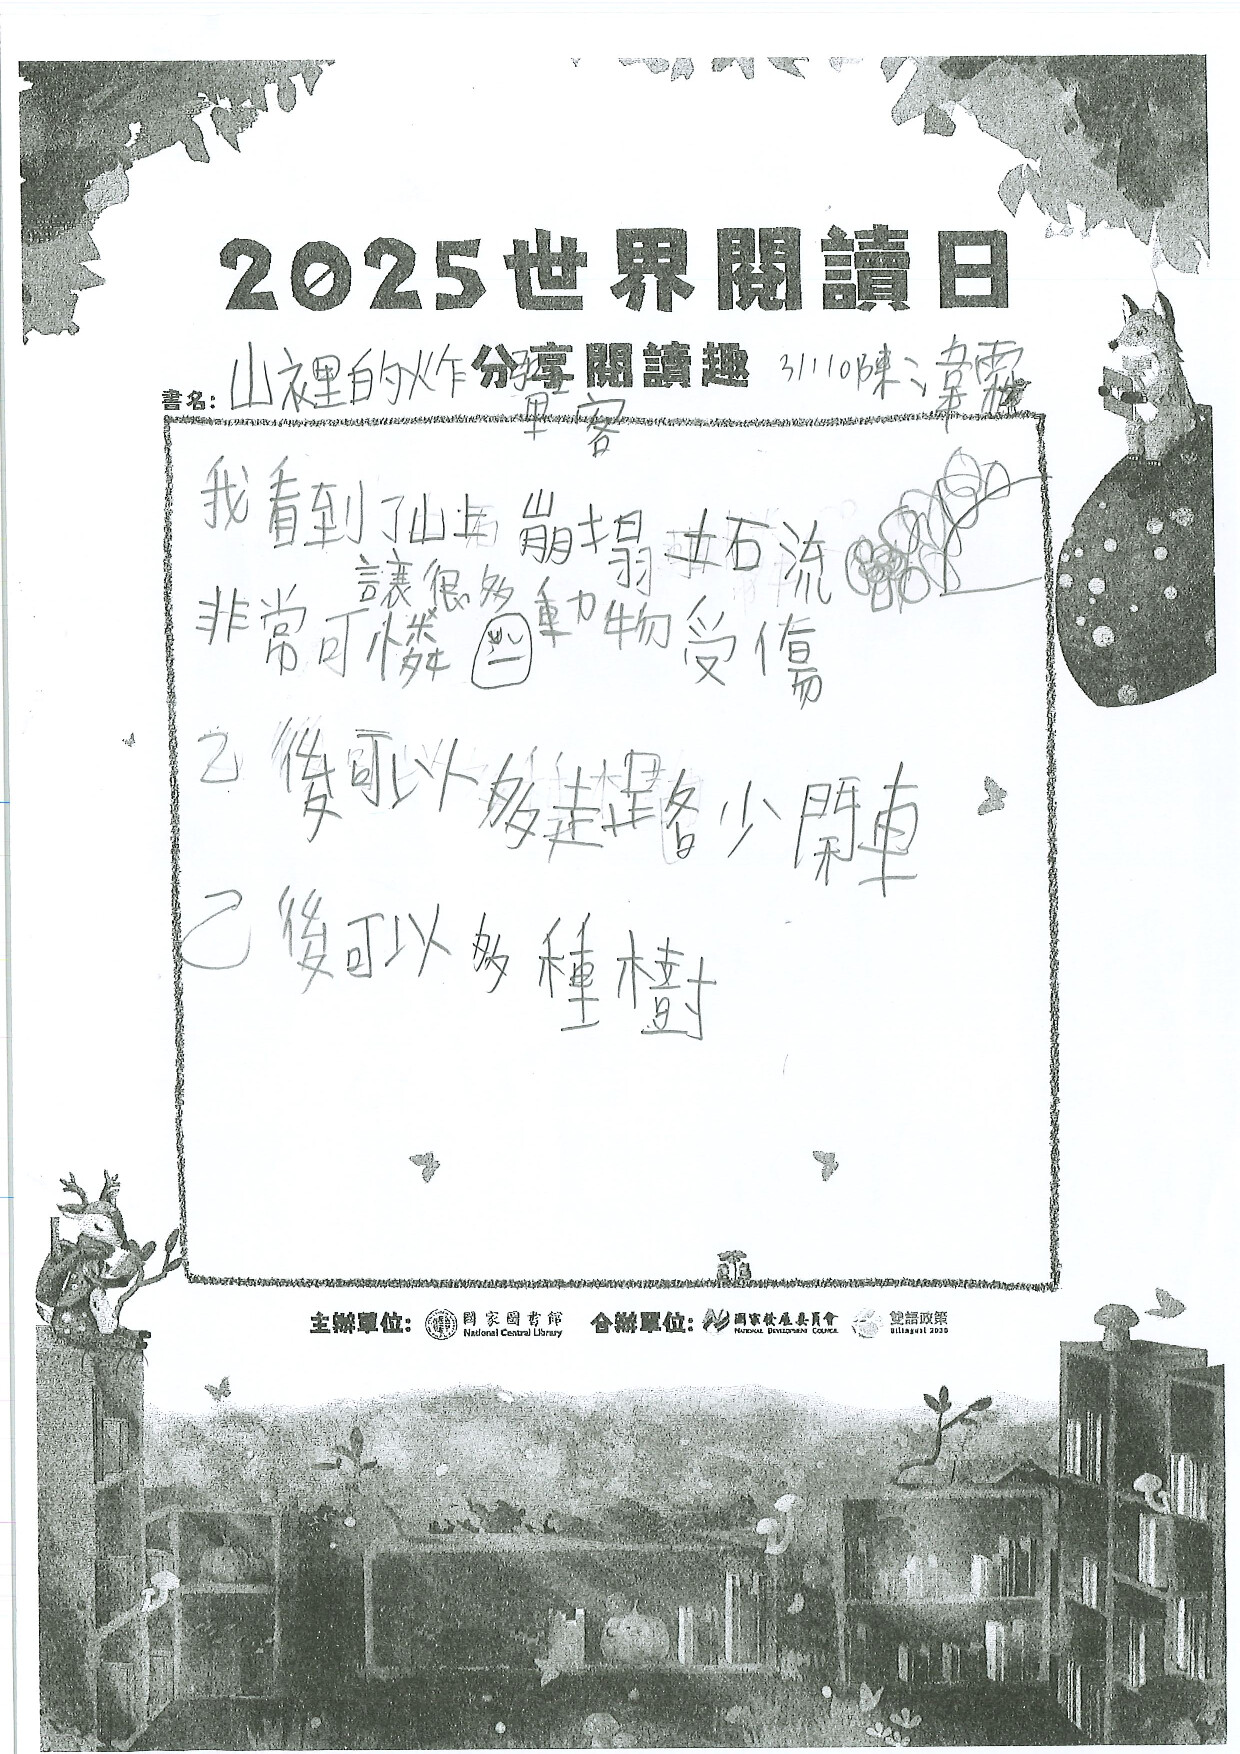 2025世界閱讀日
分享閱讀趣
書名:山裡的炸
31110陳
客
我看到了山 崩塌 石流
讓很多
非常可憐 動物受傷
己後可以多走路少開車
己後可以多種樹
主辦單位: 國家圖書館 合辦單位: 國家發展委員會 雙語政策
National Central Library NATIONAL DEVELOPMENT COUNCIL Bilingual 2030